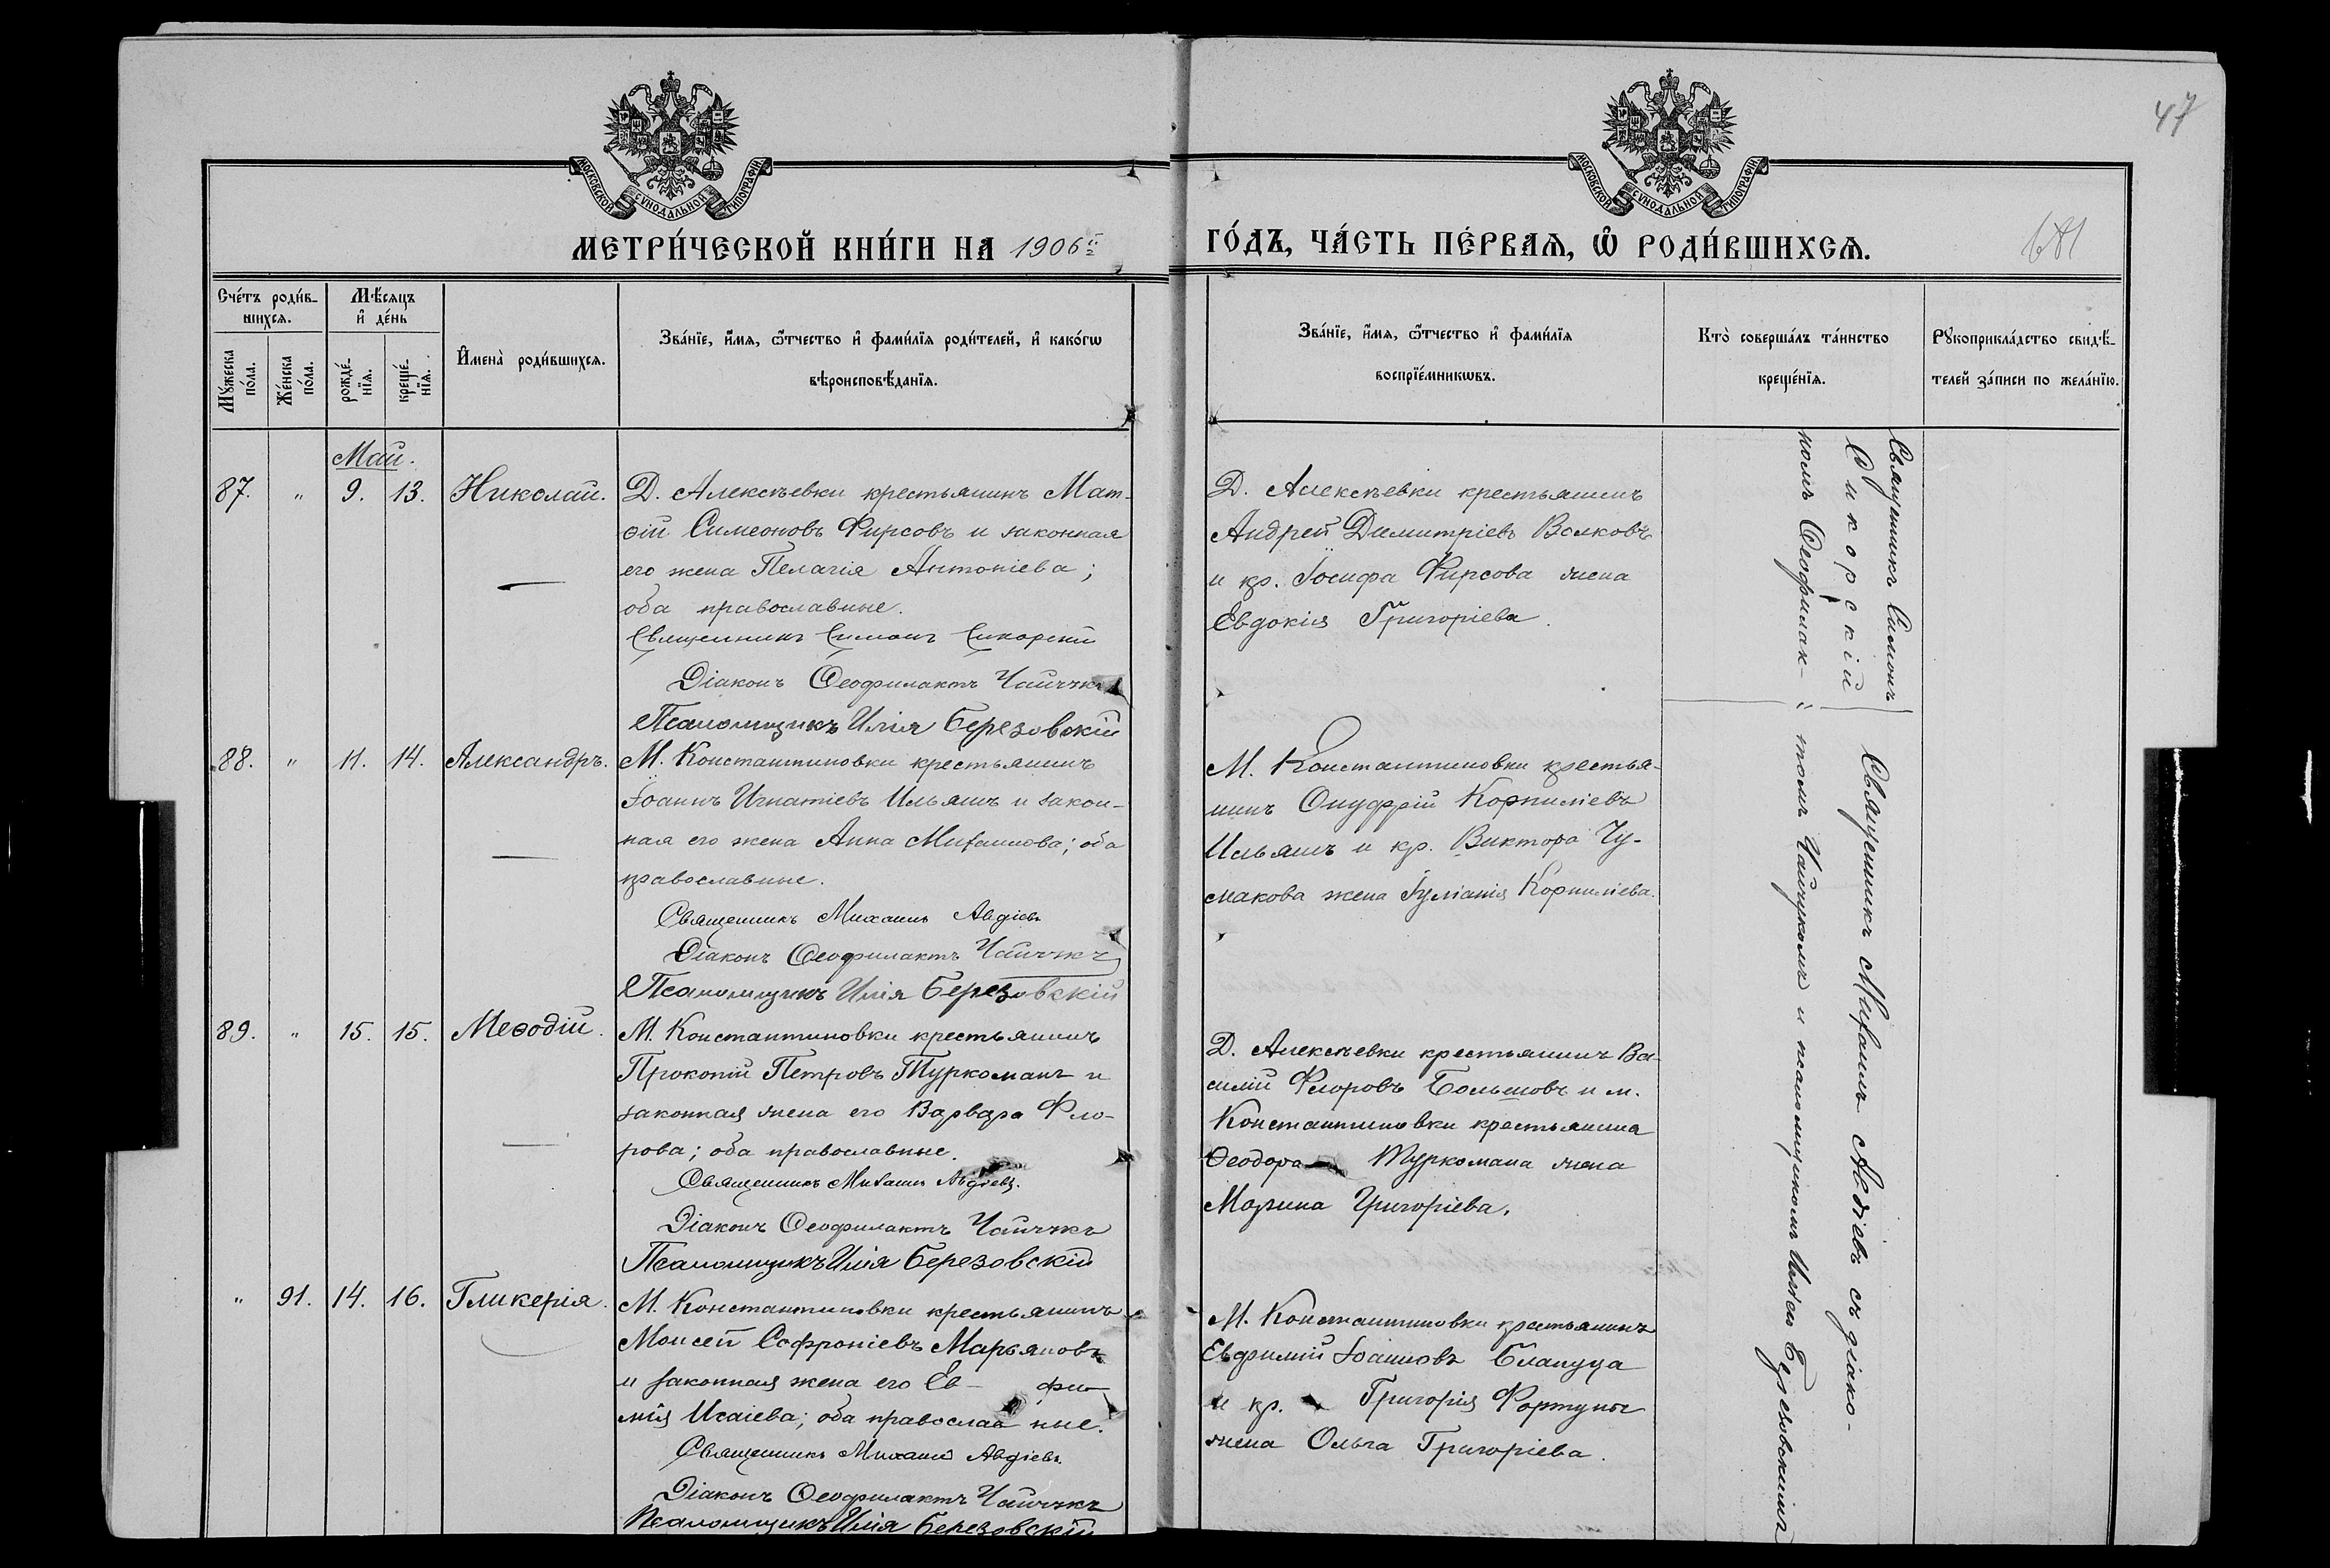 47
МОСКОВСКОЙ СУНОДАЛЬНОЙ ТИПОГРАФІИ
МОСКОВСКОЙ СУНОДАЛЬНОЙ ТИПОГРАФІИ
МЕТРИ́ЧЕСКОЙ КНИ́ГИ НА 1906й
ГО́ДЪ, ЧА́СТЬ ПЕ́РВАЯ, Ѿ РОДИ́ВШИХСЯ.
681
Сче́тъ роди́в-
шихся.
Мѣ́сяцъ
и де́нь
Му́жеска по́ла.
Же́нска по́ла.
рожде́-нїя.
креще́-нїя.
Имена̀ роди́вшихся.
Зва́нїе, и́мя, ѻ́тчество и фами́лїя роди́телей, и како́гѡ
вѣроисповѣ́данїя.
Зва́нїе, и́мя, ѻ́тчество и фами́лїя
воспрїе́мникѡвъ.
Кто̀ соверша́лъ та́инство
креще́нїя.
Рукоприкла́дство свидѣ́-
телей за́писи по жела́нїю.
Май.
87. " 9. 13. Николай.
Д. Алексѣевки крестьянинъ Мат-
ѳій Симеоновъ Фирсовъ и законная
его жена Пелагія Антоніева;
оба православные.
Священникъ Симонъ Сикорскій
Діаконъ Ѳеофилактъ Чайчукъ
Псаломщикъ Илія Березовскій
Д. Алексѣевки крестьянинъ
Андрей Димитріевъ Волковъ
и кр. Іосифа Фирсова жена
Евдокія Григоріева.
Священникъ Симонъ
Сикорскій
88. " 11. 14. Александръ.
М. Константиновки крестьянинъ
Іоаннъ Игнатіевъ Ильяшъ и закон-
ная его жена Анна Михаилова; оба
православные.
Священникъ Михаилъ Авдіевъ
Діаконъ Ѳеофилактъ Чайчукъ
Псаломщикъ Илія Березовскій
М. Константиновки крестья-
нинъ Онуфрій Корниліевъ
Ильяшъ и кр. Виктора Чу-
макова жена Іуліанія Корниліева.
Священникъ Михаилъ Авдіевъ съ діако-
номъ Ѳеофилак-
" томъ Чайчукомъ и псаломщикомъ Иліею Березовскимъ
89. " 15. 15. Меѳодій.
М. Константиновки крестьянинъ
Прокопій Петровъ Туркоманъ и
законная жена его Варвара Фло-
рова; оба православные.
Священникъ Михаилъ Авдіевъ.
Діаконъ Ѳеофилактъ Чайчукъ
Псаломщикъ Илія Березовскій
Д. Алексѣевки крестьянинъ Ва-
силій Флоровъ Большовъ и м.
Константиновки крестьянина
Ѳеодора Туркомана жена
Марина Григоріева.
" 91. 14. 16. Гликерія.
М. Константиновки крестьянинъ
Моисей Софроніевъ Марьяновъ
и законная жена его Ев- фи-
мія Исаіева; оба православ ные.
Священникъ Михаилъ Авдіевъ.
Діаконъ Ѳеофилактъ Чайчукъ
Псаломщикъ Илія Березовскій
М. Константиновки крестьянинъ
Евфимій Іоанновъ Блануца
и кр. Григорія Фортуны
жена Ольга Григоріева.